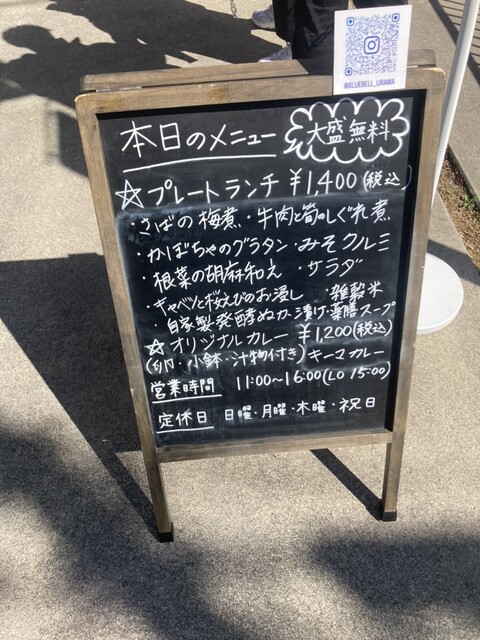 @BLUEBELL_URAWA
本日のメニュー
大盛無料
☆プレートランチ ¥1,400(税込)
・さばの梅煮・牛肉と筍のしぐれ煮
・かぼちゃのグラタン・みそクルミ
・根菜の胡麻和え ・サラダ
・キャベツと桜えびのお浸し ・雑穀米
・自家製発酵ぬか漬け・薬膳スープ
☆オリジナルカレー ¥1,200(税込)
(卵・小鉢・汁物付き)キーマカレー
営業時間 11:00~16:00(LO 15:00)
定休日 日曜・月曜・木曜・祝日